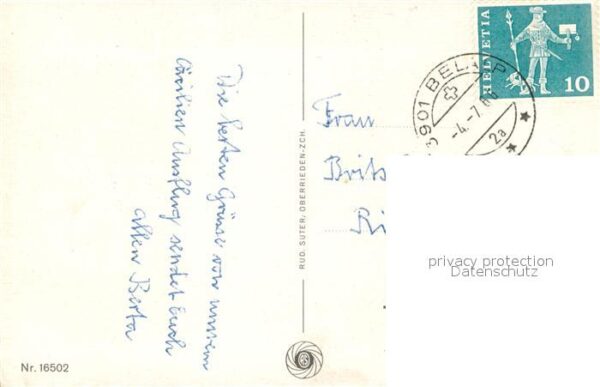 Die besten Grüsse von unserem
Cäcilien Ausflug sendet Euch
allen Berta
Nr. 16502
RUD. SUTER, OBERRIEDEN-ZCH.
HELVETIA
10
3901 BELALP
-4.-7.
2a
Frau
privacy protection
Datenschutz